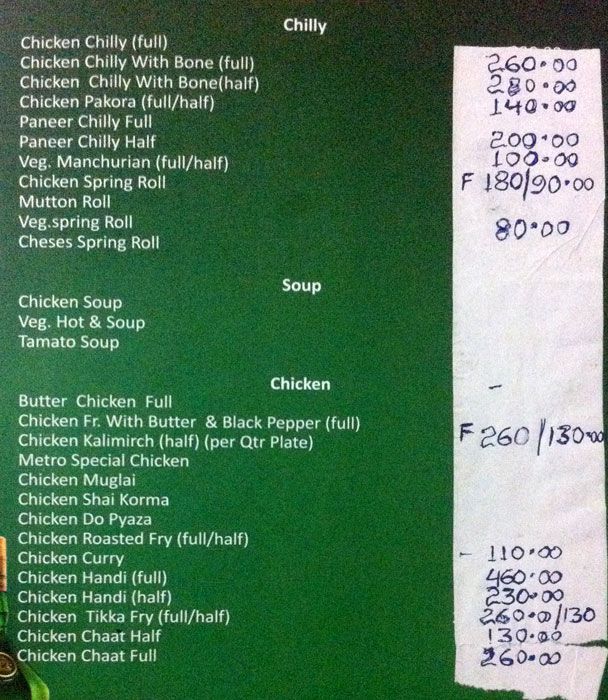 Chilly
Chicken Chilly (full)
Chicken Chilly With Bone (full) 260.00
Chicken Chilly With Bone(half) 280.00
Chicken Pakora (full/half) 140.00
Paneer Chilly Full
Paneer Chilly Half 200.00
Veg. Manchurian (full/half) 100.00
Chicken Spring Roll F 180/90.00
Mutton Roll
Veg.spring Roll 80.00
Cheses Spring Roll
Soup
Chicken Soup
Veg. Hot & Soup
Tamato Soup
Chicken -
Butter Chicken Full
Chicken Fr. With Butter & Black Pepper (full)
Chicken Kalimirch (half) (per Qtr Plate) F 260/130.00
Metro Special Chicken
Chicken Muglai
Chicken Shai Korma
Chicken Do Pyaza
Chicken Roasted Fry (full/half)
Chicken Curry - 110.00
Chicken Handi (full) 460.00
Chicken Handi (half) 230.00
Chicken Tikka Fry (full/half) 260.0/130
Chicken Chaat Half 130.00
Chicken Chaat Full 260.00